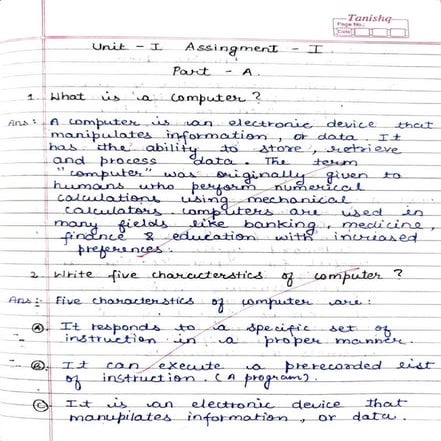 Tanishq
Page No.
Date
Unit - I Assingment - I
Part - A.
1. What is a computer?
Ans: A computer is an electronic device that
manipulates information, or data. It
has the ability to store, retrieve
and process data. The term
"computer" was originally given to
humans who perform numerical
calculations using mechanical
calculators. computers are used in
many fields like banking, medicine,
finance & education with increased
preferences.
2. Write five charcterstics of computer?
Ans:- Five characterstics of computer are:
(A) It responds to a specific set of
instruction in a proper manner.
(B) It can execute a prerecorded list
of instruction. (A program).
(C) It is an electronic device that
manupilates information, or data.